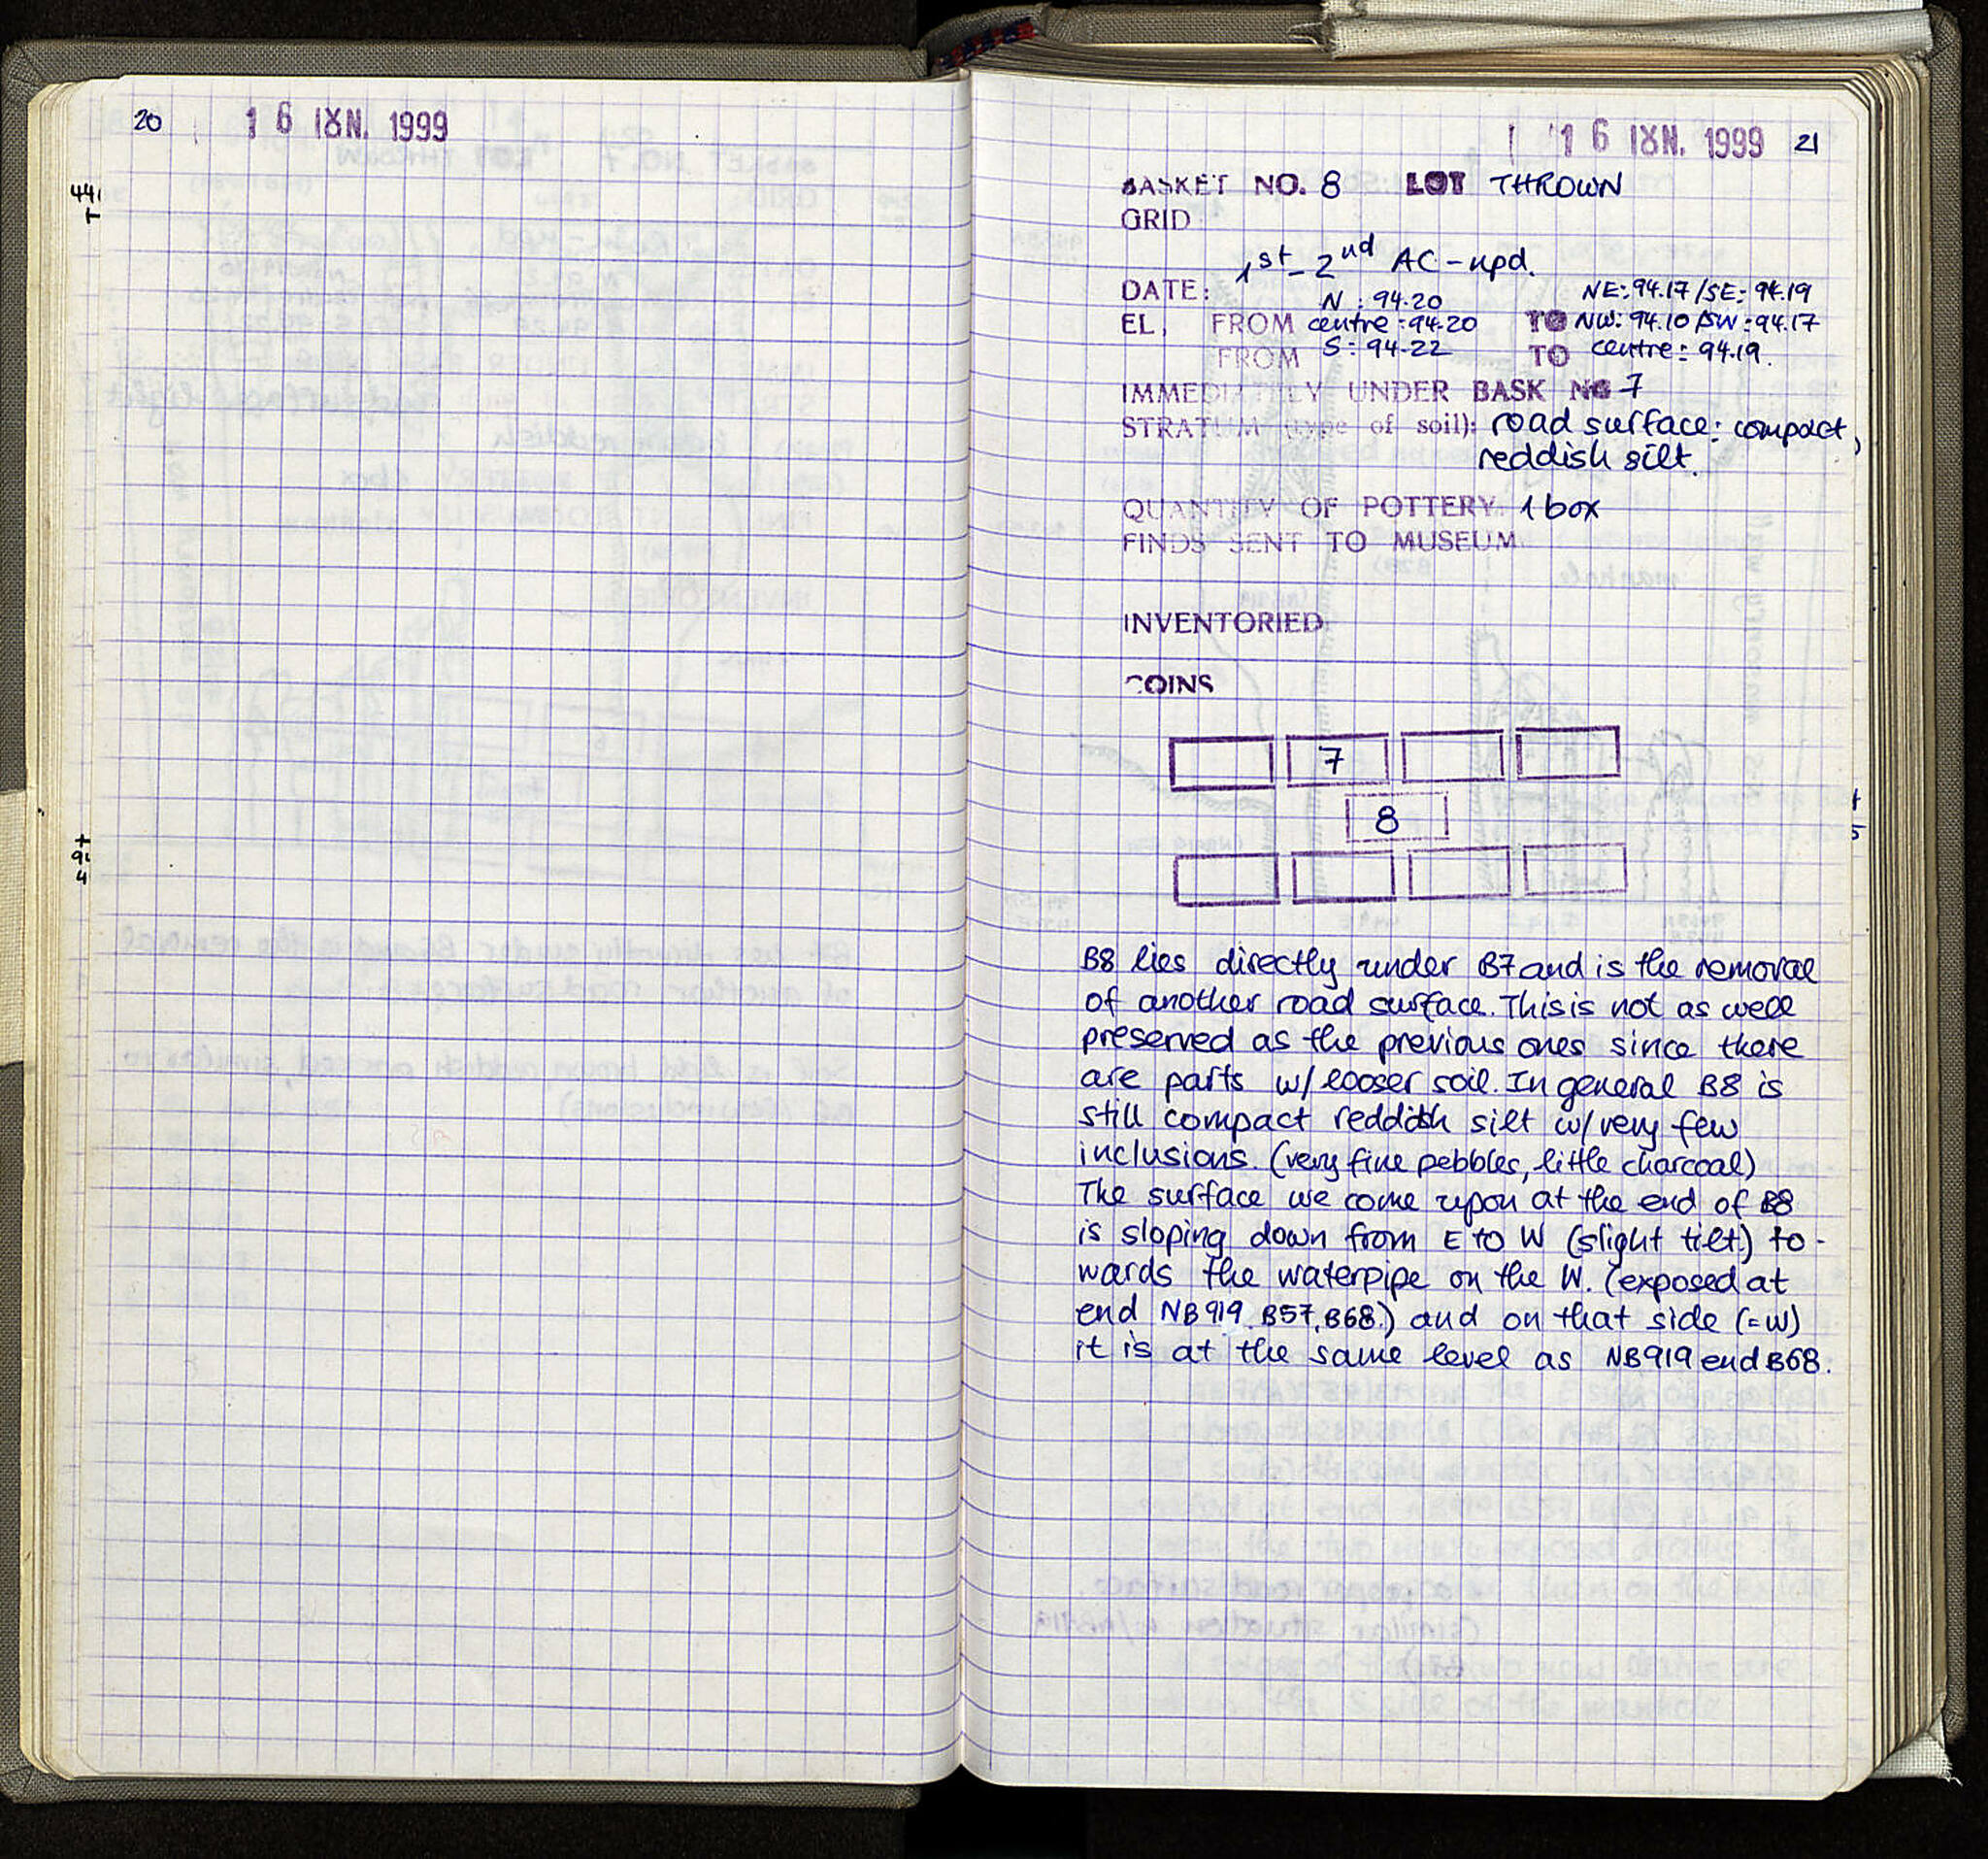 20
16 ΙΟΥΝ. 1999
44
+
+
94
4
16 ΙΟΥΝ. 1999 21
BASKET NO. 8 LOT THROWN
GRID
1st-2nd AC-npd.
DATE:
N: 94.20 NE: 94.17 / SE: 94.19
EL, FROM centre: 94.20 TO NW: 94.10 / SW: 94.17
FROM S: 94.22 TO centre: 94.19.
IMMEDIATELY UNDER BASK NO 7
STRATUM (type of soil): road surface: compact,
reddish silt.
QUANTITY OF POTTERY. 1 box
FINDS SENT TO MUSEUM
INVENTORIED
COINS
7
8
B8 lies directly under B7 and is the removal
of another road surface. This is not as well
preserved as the previous ones since there
are parts w/ looser soil. In general B8 is
still compact reddish silt w/ very few
inclusions. (very fine pebbles, little charcoal)
The surface we come upon at the end of B8
is sloping down from E to W (slight tilt) to-
wards the waterpipe on the W. (exposed at
end NB919. B57, B68.) and on that side (=W)
it is at the same level as NB919 end B68.